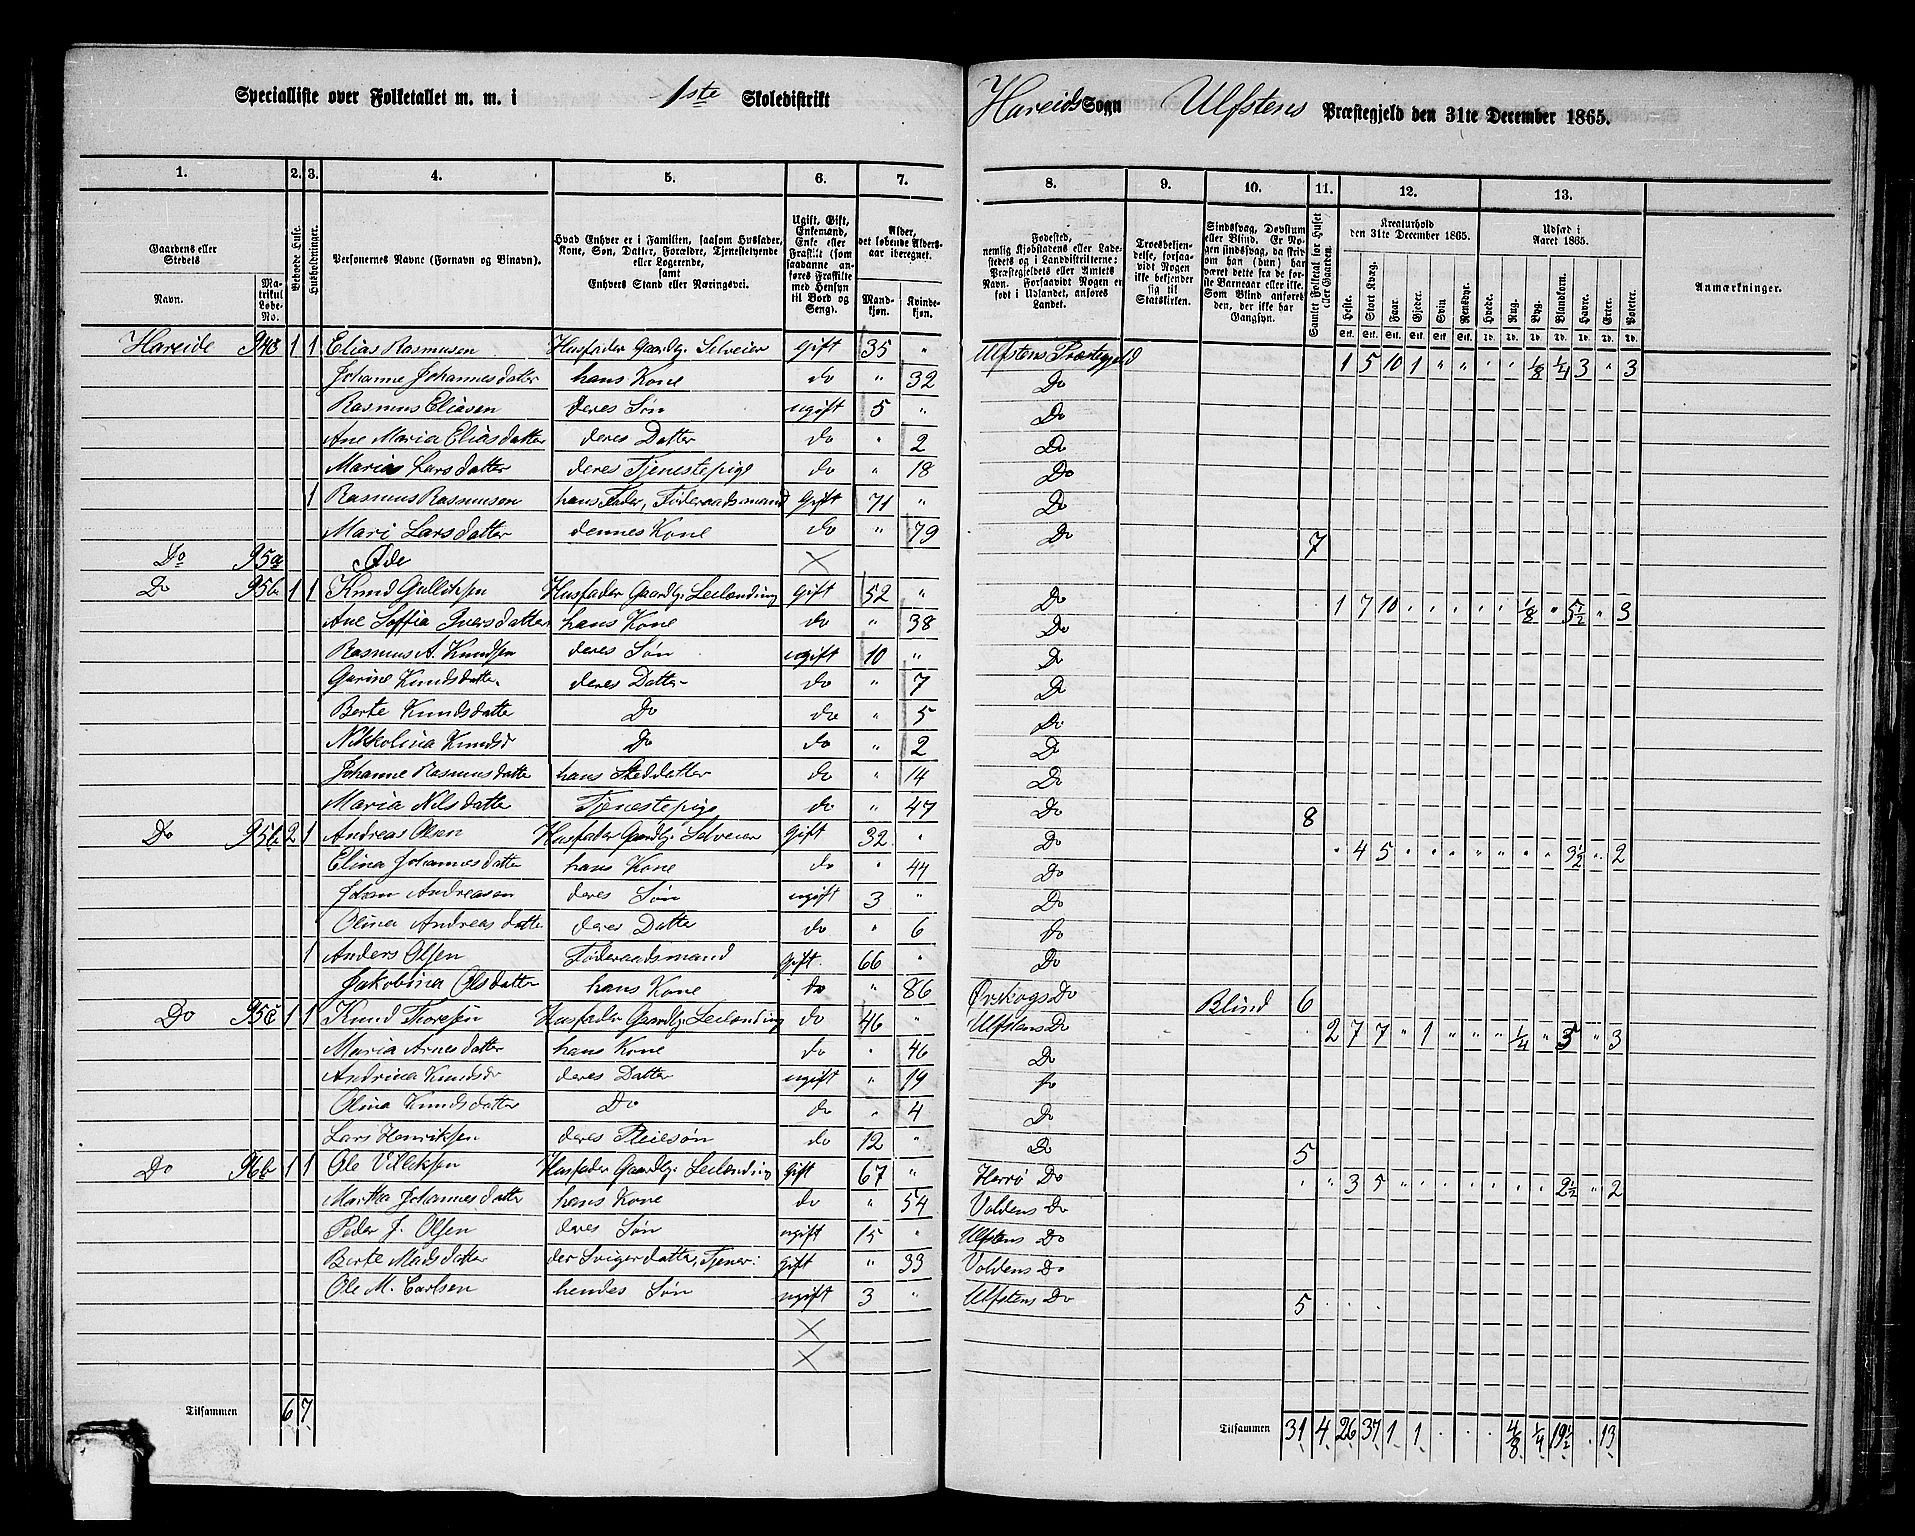 Specialliste over Folketallet m. m. i 1ste Skoledistrikt Hareids Sogn Ulfstens Præstegjeld den 31te December 1865.
1. 2. 3. 4. 5. 6. 7. 8. 9. 10. 11. 12. 13.
Gaardens eller Stedets Navn. Matrikul Løbe-No.
Beboede Huse.
Husholdninger.
Personernes Navne (Fornavn og Binavn).
Hvad Enhver er i Familien, saasom Husfader, Kone, Søn, Datter, Forældre, Tjenestetyende eller Logerende, samt Enhvers Stand eller Næringsvei.
Ugift, Gift, Enkemand, Enke eller Fraskilt (som saadanne anføres Fraskilte med Hensyn til Bord og Seng).
Alder, det løbende Alders-aar iberegnet. Mand-kjøn. Kvinde-kjøn.
Fødested, nemlig Kjøbstadens eller Ladestedets og i Landdistrikterne: Præstegjeldets eller Amtets Navn. Forsaavidt Nogen er født i Udlandet, anføres Landet.
Troesbekjendelse, forsaavidt Nogen ikke bekjender sig til Statskirken.
Sindssvag, Døvstum eller Blind. Er Nogen sindssvag, da skrives om han (hun) har været dette fra de første Barneaar eller ikke. Som Blind anføres den, der ikke har Gangsyn.
Samlet Folketal for Huset eller Gaarden.
Kreaturhold den 31te December 1865. Heste. Stort Kvæg. Faar. Gjeder. Sviin Rensdyr.
Udsæd i Aaret 1865. Hvede. Rug. Byg. Blandkorn. Havre. Erter. Poteter.
Anmærkninger.
Hareide 94b 1 1 Elias Rasmusen Husfader Gaardbr: Selveier Gift 35 " Ulfstens Præstegjeld 1 5 10 1 " " " " 1/8 1/4 3 " 3
Johanne Johannesdatter hans Kone do " 32 Do
Rasmus Eliasen deres Søn ugift 5 " Do
Ane Maria Eliasdatter deres Datter do " 2 Do
Marias Larsdatter deres Tjenestepige do " 18 Do
1 Rasmus Rasmusen hans Fader, Føderaadsmand Gift 71 " Do
Mari Larsdatter dennes Kone do " 79 Do 7
Do 95a Øde
Do 95b 1 1 Knud Gulliksen Husfader Gaardbr: Leilænding Gift 52 " Do 1 7 10 1/8 " 5 1/2 " 3
Ane Soffia Iversdatter hans Kone do " 38 Do
Rasmus A. Knudsen deres Søn ugift 10 " Do
Gurine Knudsdatte deres Datter do " 7 Do
Berte Knudsdatte Do do " 5 Do
Nikkolina Knudsd Do do " 2 Do
Johanne Rasmusdatte hans Steddatter do " 14 Do
Maria Nilsdatte Tjenestepige do " 47 Do 8
Do 95b 2 1 Andreas Olsen Husfader Gaardbr: Selveier Gift 32 " Do " 4 5 " " " " " " " 3 1/2 " 2
Elina Johannesdatte hans Kone do " 44 Do
Johan Andreasen deres Søn ugift 3 " Do
Olina Andreasdatte deres Datte do " 6 do
1 Anders Olsen Føderaadsmand Gift 66 " Do
Jakobina Olsdatter hans Kone do " 86 Ørskogs Do Blind 6
Do 95c 1 1 Knud Thoresen Husfader Gaardbr: Leilænding do 46 " Ulfstens Do 2 7 7 " 1 " " " 1/4 " 3 " 3
Maria Arnesdatter hans Kone do " 46 Do
Andrina Knudsdr deres Datter ugift " 19 do
Olina Knudsdatter Do do " 4 Do
Lars Henriksen deres Pleiesøn do 12 " Do 5
Do 96b 1 1 Ole Villiksen Husfader Gaardbr: Leilænding Gift 67 " Herrø Do " " 3 5 " " " " " " " 2 1/2 " 2
Martha Johannesdatter hans Kone do " 54 Voldens Do
Peder J. Olsen deres Søn ugift 15 " Ulfstens Do
Berte Madsdatter der Svigerdatte, Tjener: Gift " 33 Voldens Do
Ole M. Carlsen hendes Søn ugift 3 " Ulfstens Do 5
Tilsammen 6 7
Tilsammen 31 4 26 37 1 1 4/8 1/4 19 1/2 13